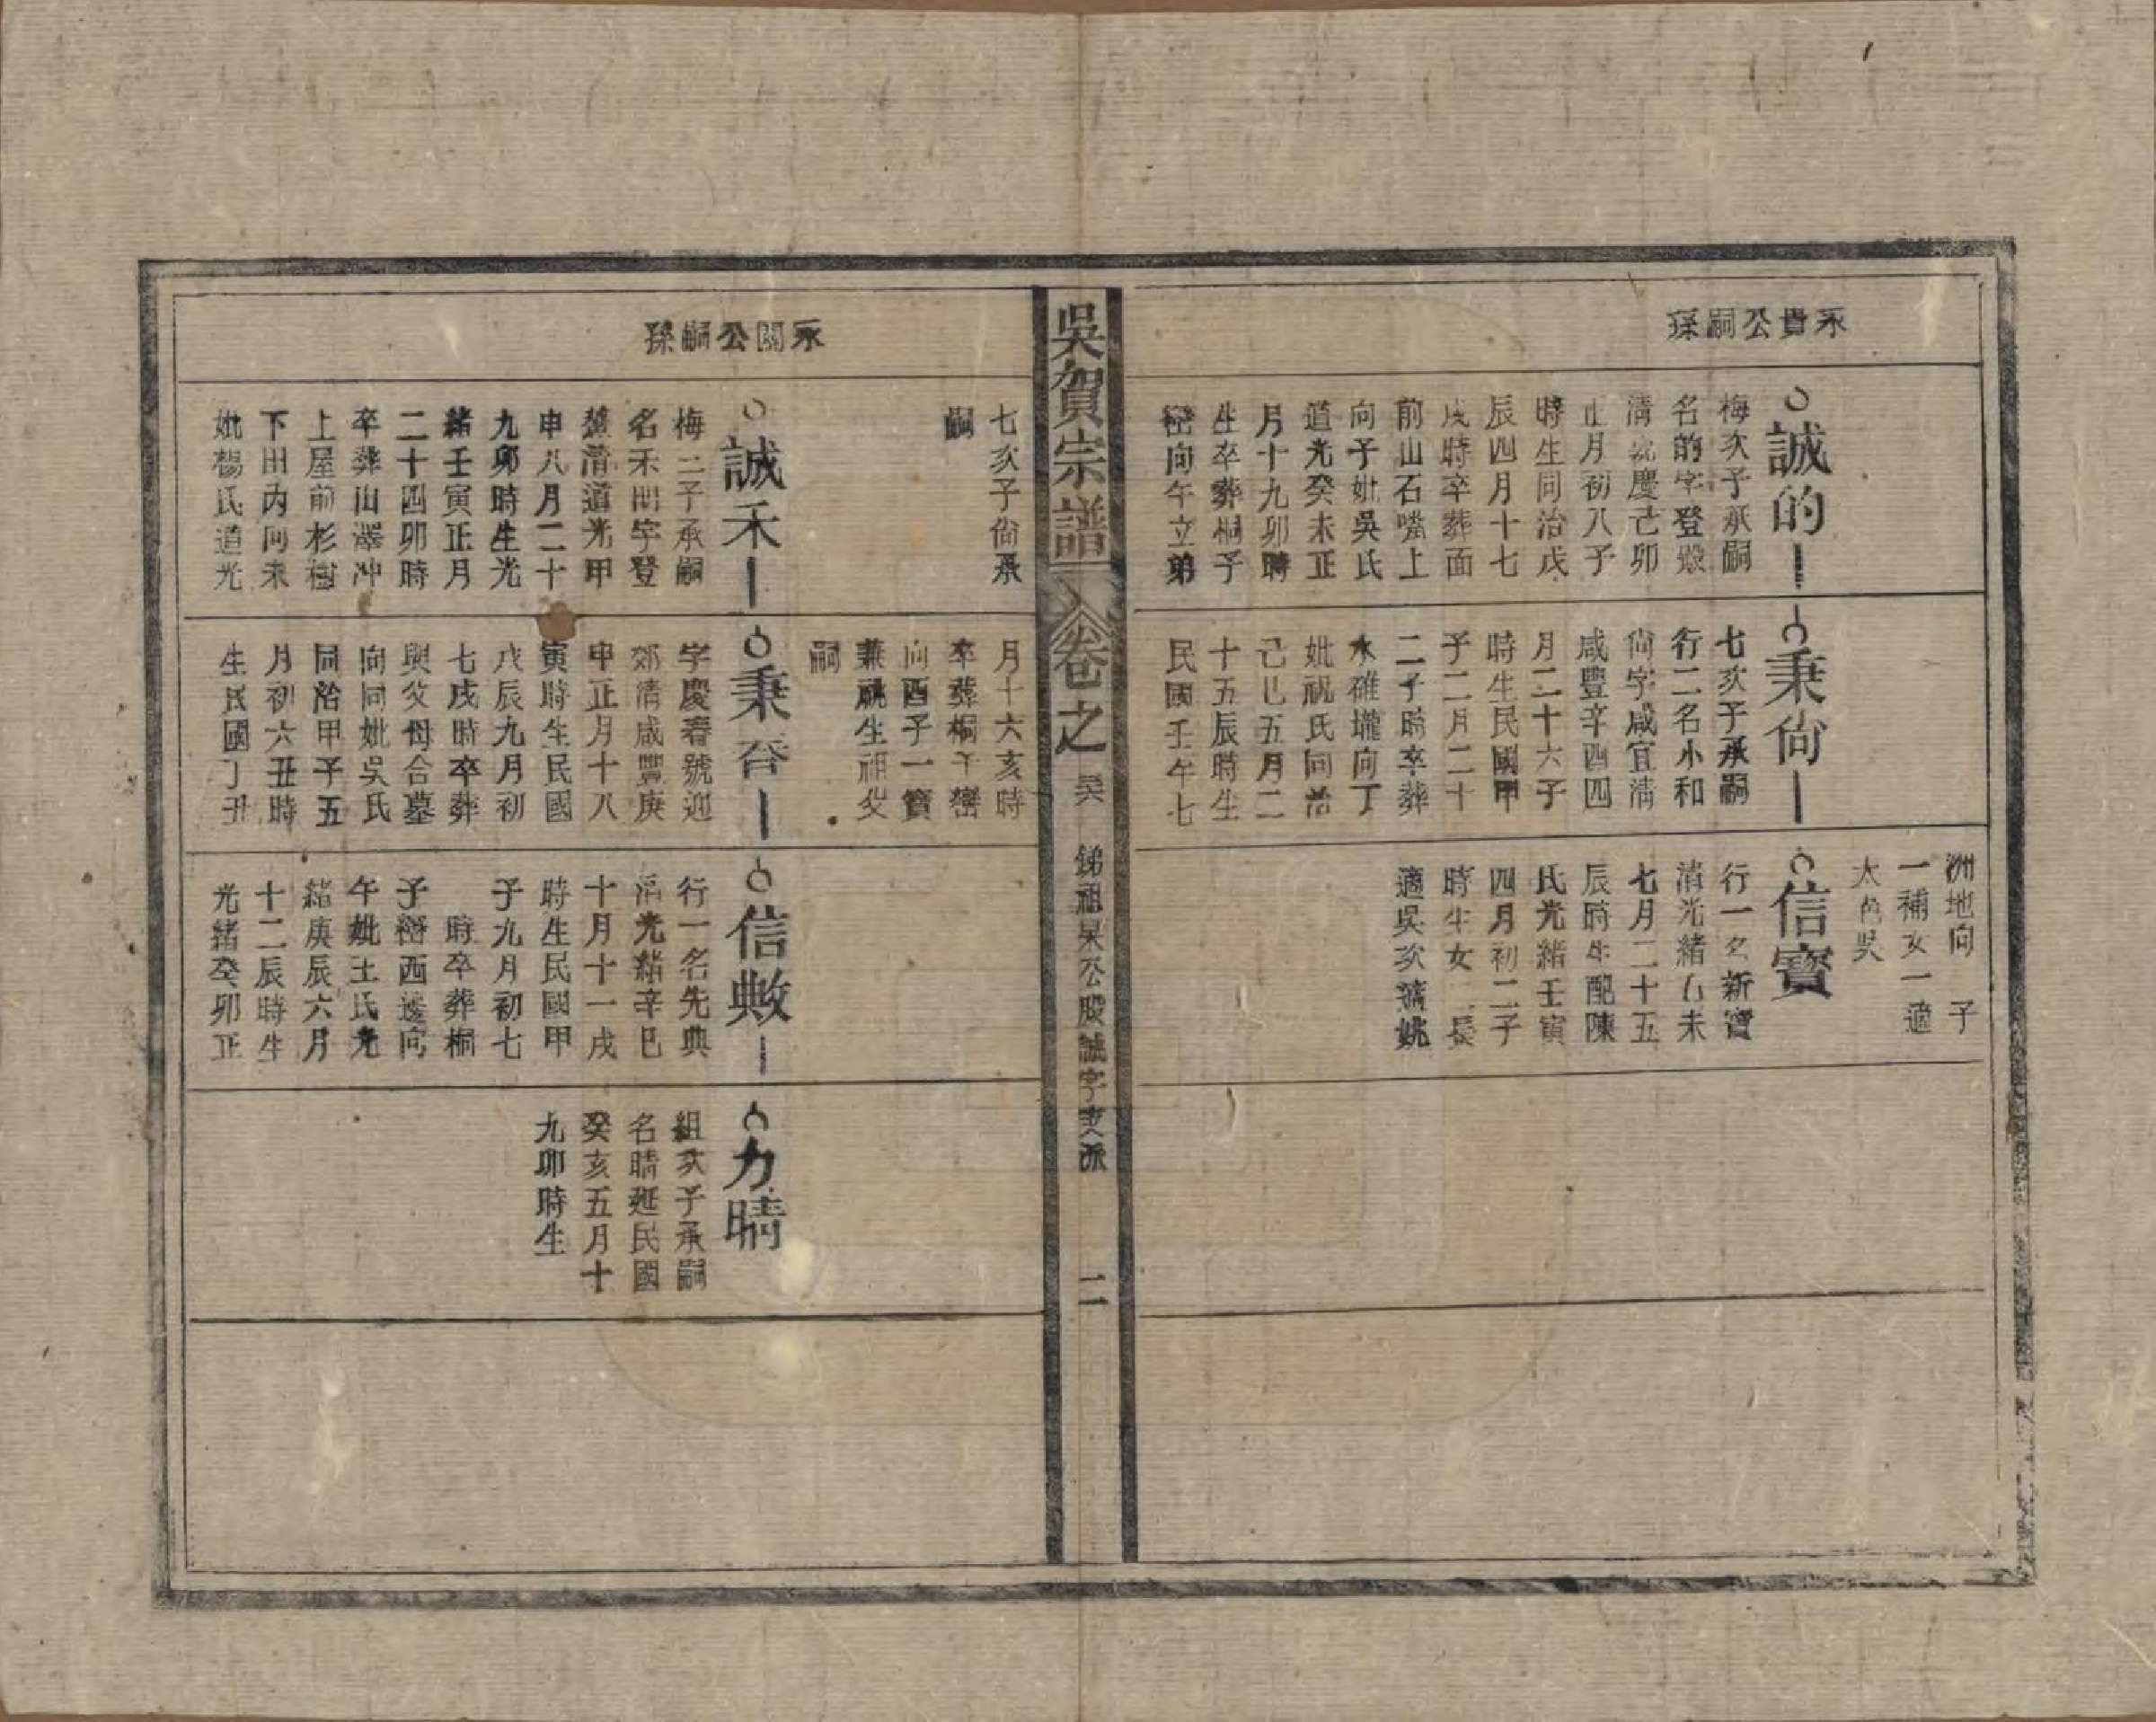 永貴公嗣孫
誠的
梅次子承嗣
名的字登殿
清嘉慶己卯
正月初八子
時生同治戊
辰四月十七
戌時卒葬面
前山石嘴上
向子妣吳氏
道光癸未正
月十九卯時
生卒葬桐子
巒向午立弟
秉尙
七次子承嗣
行二名小和
尙字咸宜淸
咸豐辛酉四
月二十六子
時生民國甲
子二月二十
二子時卒葬
水碓壠向丁
妣祝氏同治
己巳五月二
十五辰時生
民國壬午七
洲地向 子
一補女一適
大邑吳
信寳
行一名新寶
淸光緒乙未
七月二十五
辰時生配陳
氏光緒壬寅
四月初二子
時生女二長
適吳次適姚
吳賀宗譜
卷之
銻祖杲公股誠字支派
二
七次子尙承
嗣
月十六亥時
卒葬桐子巒
向酉子一寳
兼祧生祖父
嗣
永閣公嗣孫
誠禾
梅三子承嗣
名禾明字登
瀛清道光甲
申八月二十
九卯時生光
緒壬寅正月
二十四卯時
卒葬山澤冲
上屋前杉樹
下田內向未
妣楊氏道光
秉吞
字慶春號迎
郊清咸豐庚
申正月十八
寅時生民國
戊辰九月初
七戌時卒葬
與父母合墓
向同妣吳氏
同治甲子五
月初六丑時
生民國丁丑
信敟
行一名先典
淸光緒辛巳
十月十一戌
時生民國甲
子九月初七
時卒葬桐
子巒西邊向
午妣王氏光
緒庚辰六月
十二辰時生
光緒癸卯正
力晴
組次子承嗣
名晴廵民國
癸亥五月十
九卯時生